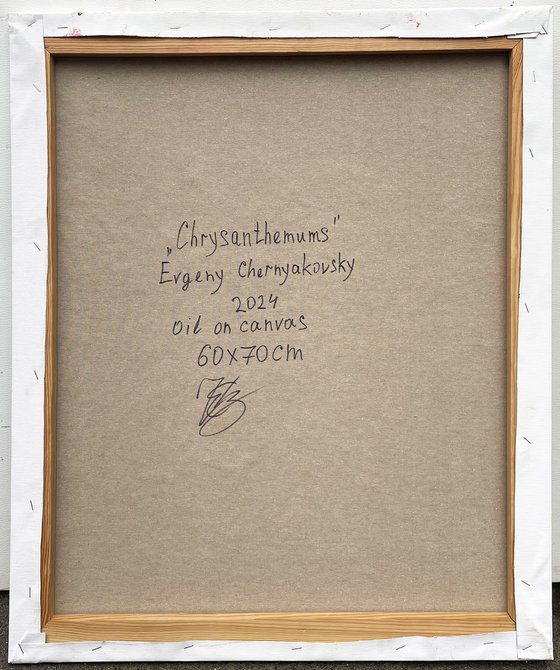 „Chrysanthemums"
Evgeny Chernyakovsky
2024
Oil on canvas
60x70cm